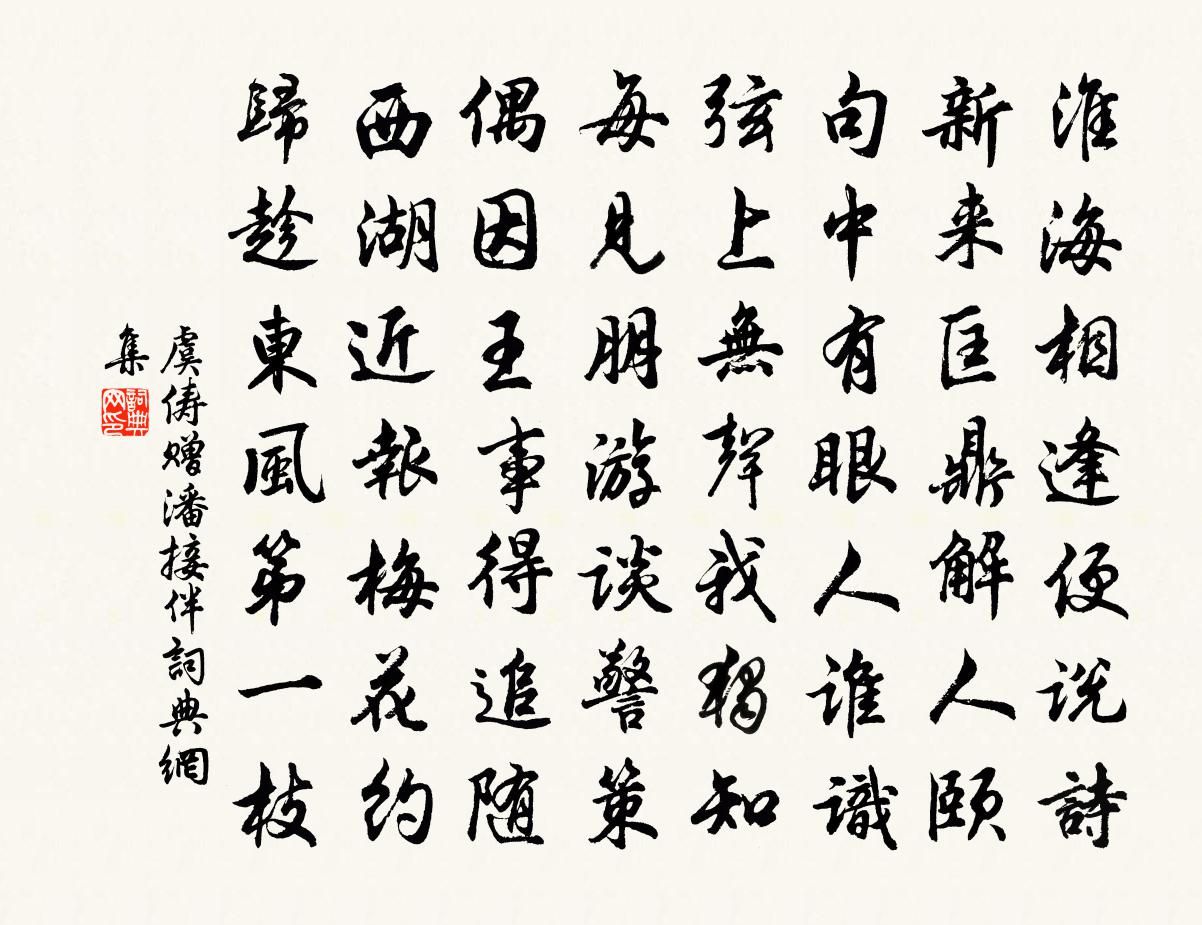 淮海相逢便说詩
新来匡鼎解人頤
句中有眼人誰識
弦上無聲我獨知
每見朋游談警策
偶因王事得追随
西湖近報梅花约
歸趁東風第一枝
虞儔赠潘接伴詞典網
集
詞典网印